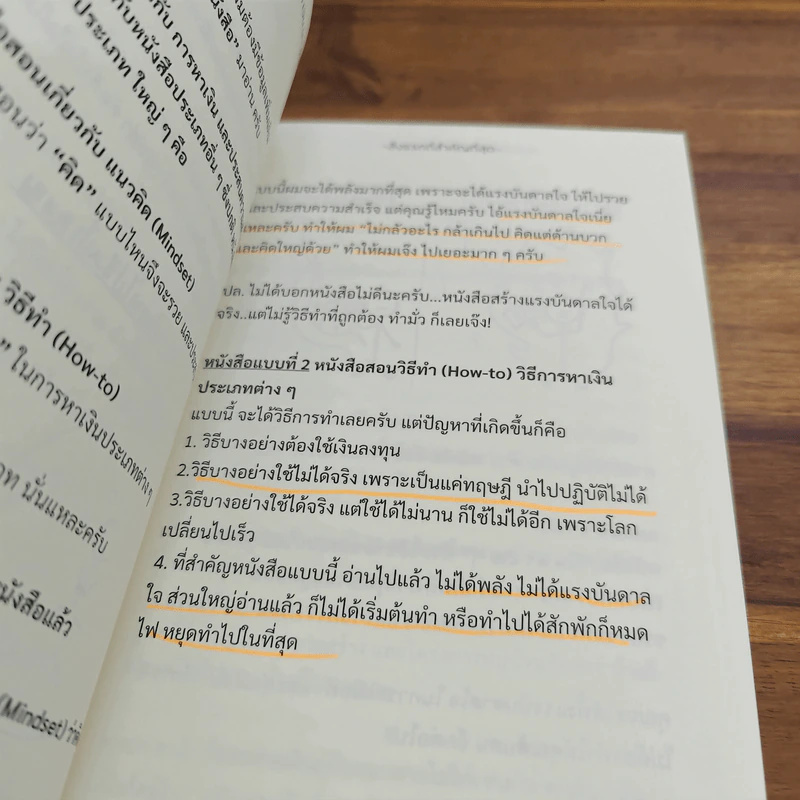 มต้องมีข้อมูล
หนังสือ” มาอ่าน ครับ
กับ การหาเงิน และประสบความ
กับหนังสือประเภทอื่น ๆ ซึ่ง
ประเภท ใหญ่ ๆ คือ
สอนเกี่ยวกับ แนวคิด (Mindset)
อนว่า “คิด” แบบไหนจึงจะรวย และ
วิธีทำ (How-to)
” ในการหาเงินประเภทต่าง ๆ
ท นั่นแหละครับ
หนังสือแล้ว
(Mindset) ว่า
แบบนี้ผมจะได้พลังมากที่สุด เพราะจะได้แรงบันดาลใจ ให้ไปรวย
และประสบความสำเร็จ แต่คุณรู้ไหมครับ ไอ้แรงบันดาลใจเนี่ย
แหละครับ ทำให้ผม “ไม่กลัวอะไร กล้าเกินไป คิดแต่ด้านบวก
และคิดใหญ่ด้วย” ทำให้ผมเจ๊ง ไปเยอะมาก ๆ ครับ
ปล. ไม่ได้บอกหนังสือไม่ดีนะครับ...หนังสือสร้างแรงบันดาลใจได้
จริง..แต่ไม่รู้วิธีทำที่ถูกต้อง ทำมั่ว ก็เลยเจ๊ง!
หนังสือแบบที่ 2 หนังสือสอนวิธีทำ (How-to) วิธีการหาเงิน
ประเภทต่าง ๆ
แบบนี้ จะได้วิธีการทำเลยครับ แต่ปัญหาที่เกิดขึ้นก็คือ
1. วิธีบางอย่างต้องใช้เงินลงทุน
2.วิธีบางอย่างใช้ไม่ได้จริง เพราะเป็นแค่ทฤษฎี นำไปปฏิบัติไม่ได้
3.วิธีบางอย่างใช้ได้จริง แต่ใช้ได้ไม่นาน ก็ใช้ไม่ได้อีก เพราะโลก
เปลี่ยนไปเร็ว
4. ที่สำคัญหนังสือแบบนี้ อ่านไปแล้ว ไม่ได้พลัง ไม่ได้แรงบันดาล
ใจ ส่วนใหญ่อ่านแล้ว ก็ไม่ได้เริ่มต้นทำ หรือทำไปได้สักพักก็หมด
ไฟ หยุดทำไปในที่สุด